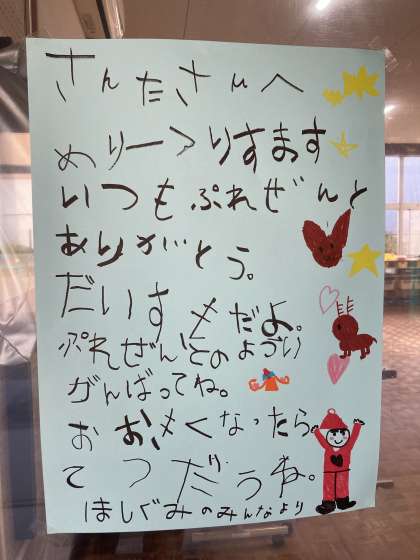 さんたさんへ
めりーくりすます
いつもぷれぜんと
ありがとう。
だいすきだよ。
ぷれぜんとのようい
がんばってね。
おおきくなったら
てつだうね。
ほしぐみのみんなより